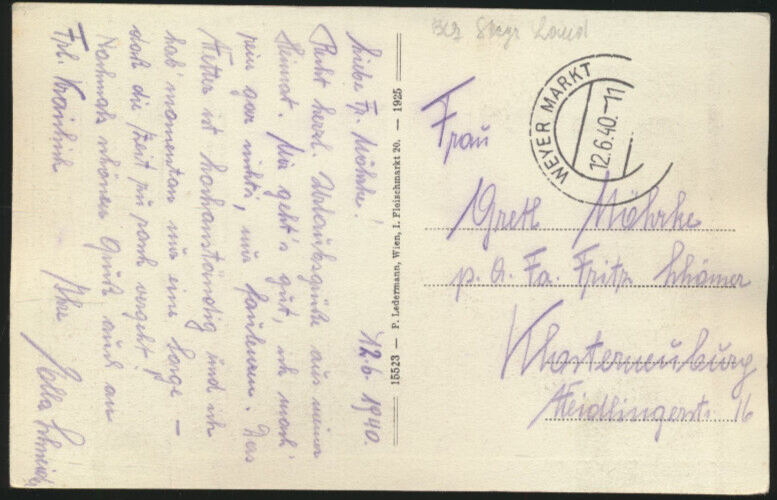 12.6.1940.
Liebe Fr. Möhrke!
Recht herzl. Urlaubsgrüße aus meiner
Heimat. Mir geht's gut, ich mach'
rein gar nichts, nur faulenzen. Das
Wetter ist hochanständig und ich
hab' momentan nur eine Sorge –
daß die Zeit zu rasch vergeht!
Nochmals schönen Gruß auch an
Frl.
Ihre
Bez Steyr Land
WEYER MARKT
12.6.40.-11
Frau
Gretl Möhrke
p. A. Fa. Fritz
Klosterneuburg
Weidlingerstr. 16
15523 — P. Ledermann, Wien, I. Fleischmarkt 20. — 1925